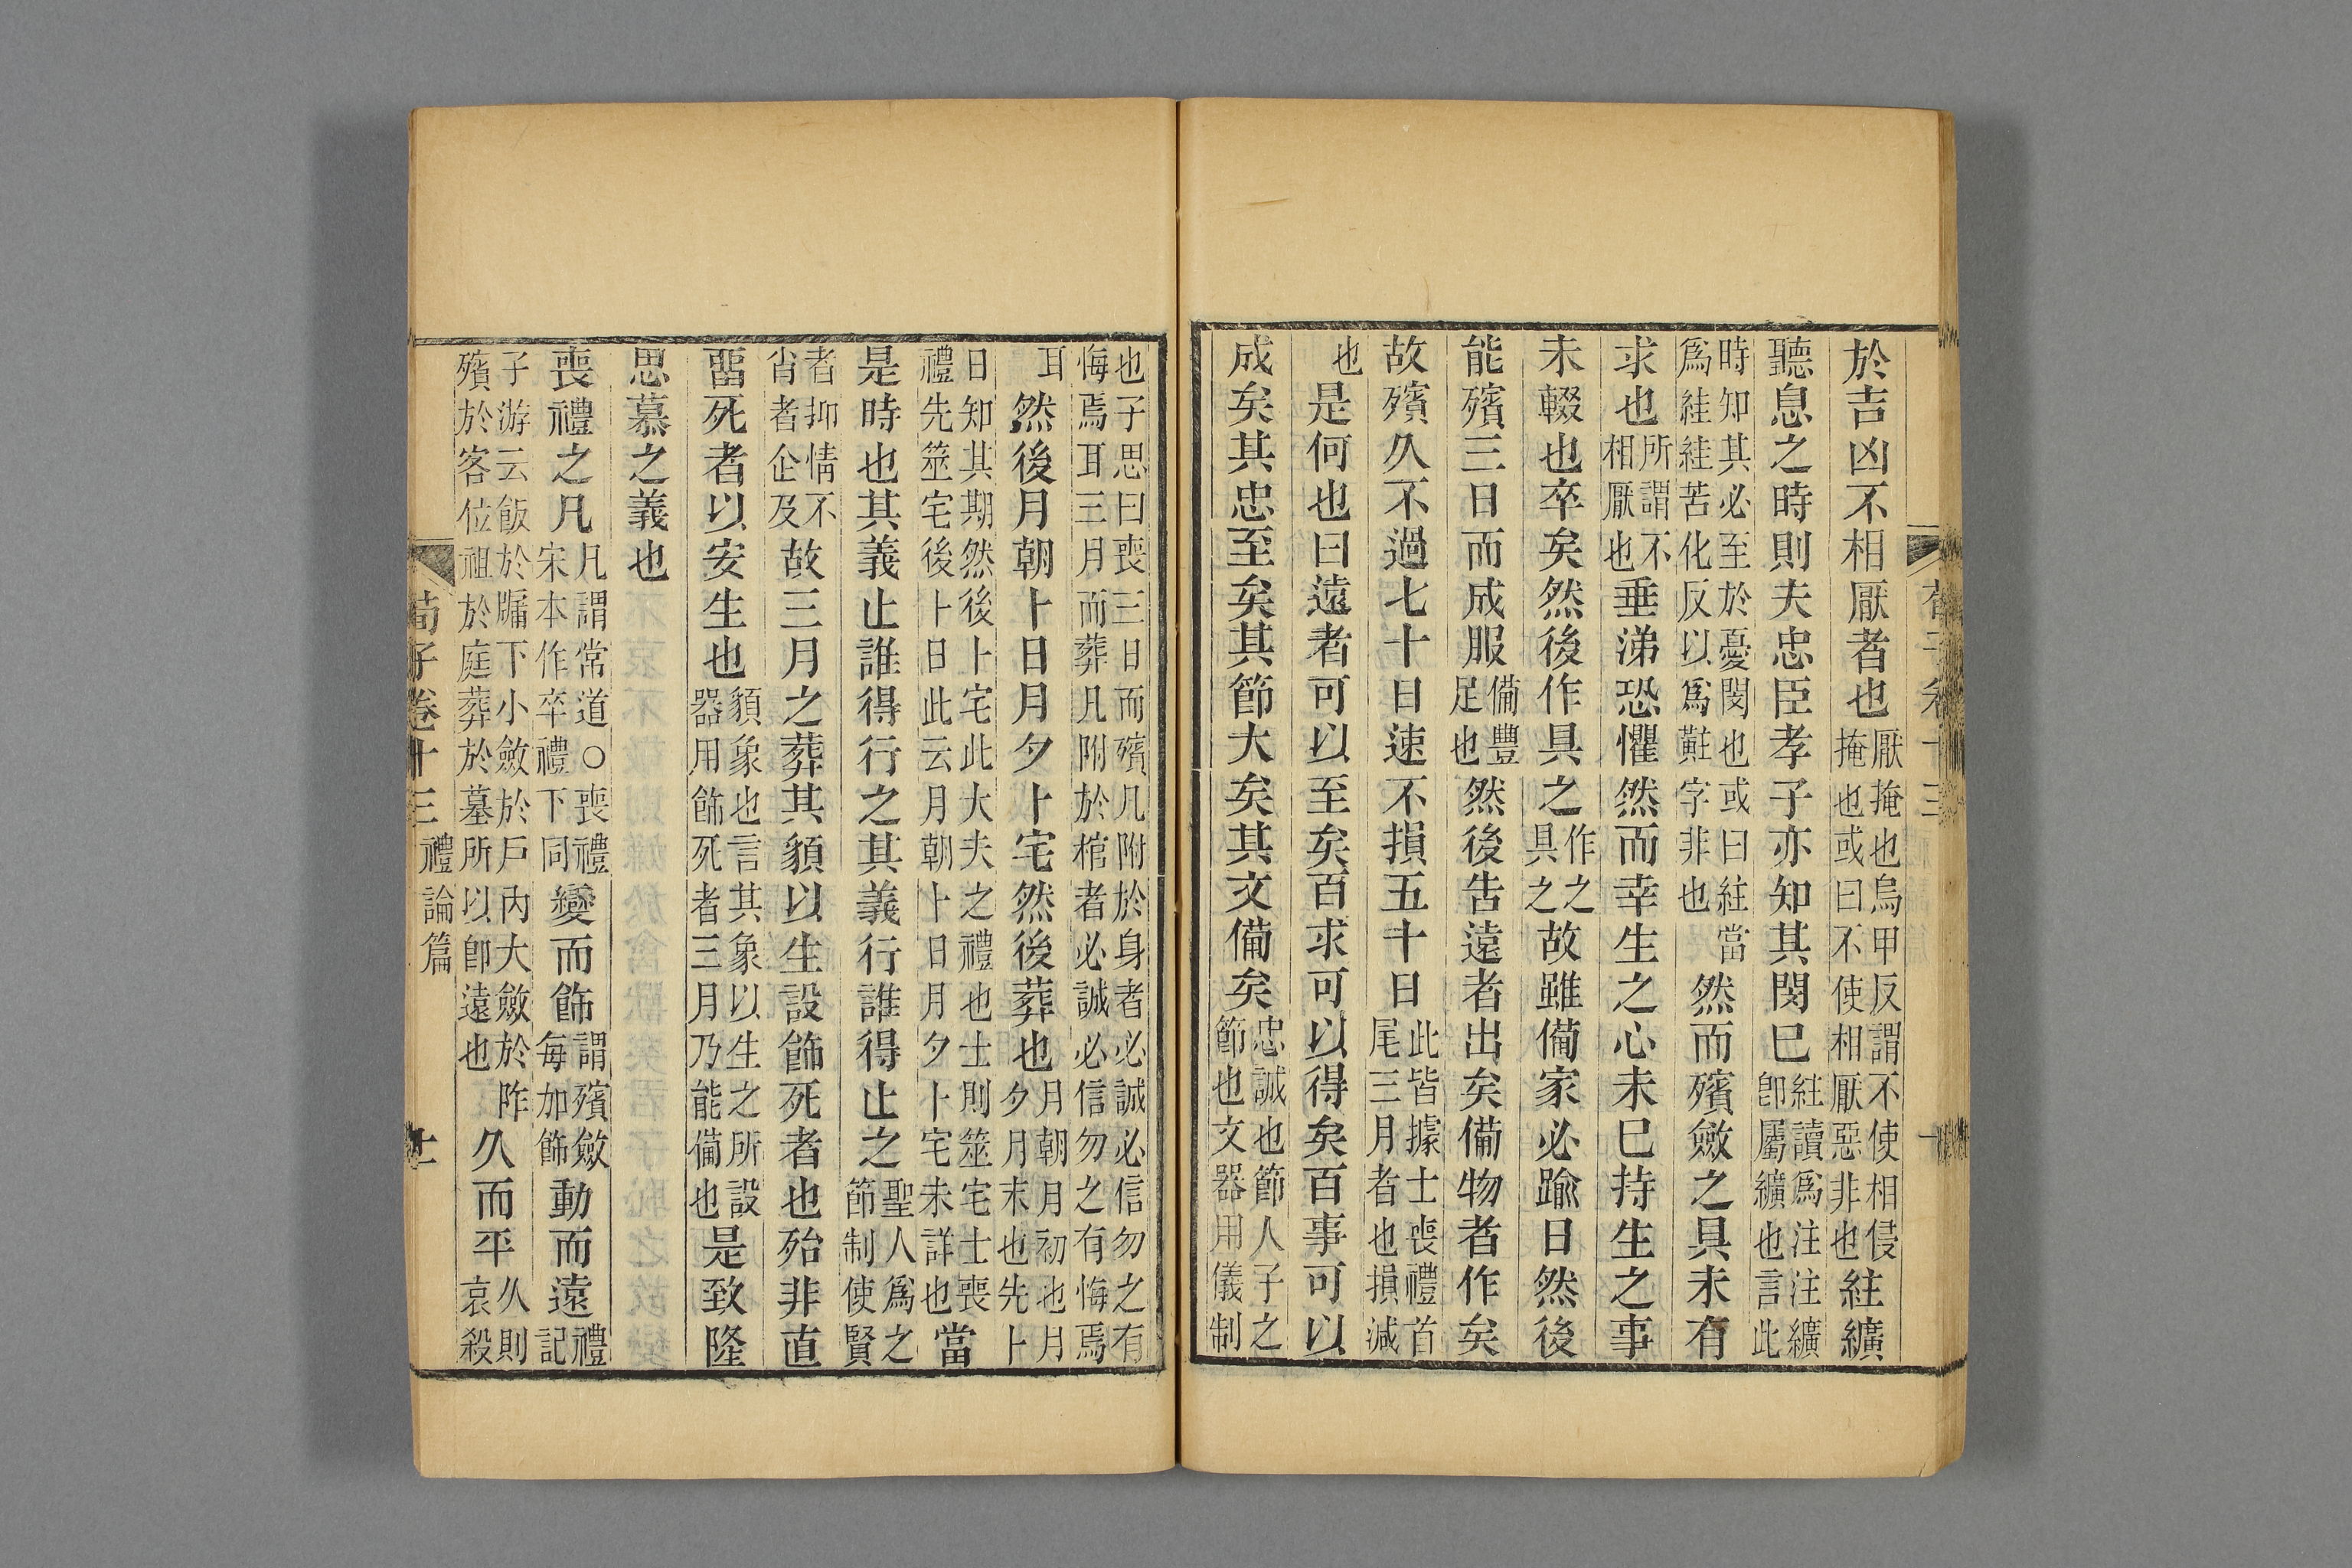 於吉凶不相厭者也厭掩也烏甲反謂不使相侵掩也或曰不使相厭惡非也紸纊
聽息之時則夫忠臣孝子亦知其閔已紸讀爲注注纊卽屬纊也言此
時知其必至於憂閔也或曰紸當爲絓絓苦化反以爲黈字非也然而殯斂之具未有
求也所謂不相厭也垂涕恐懼然而幸生之心未已持生之事
未輟也卒矣然後作具之作之具之故雖備家必踰日然後
能殯三日而成服備豐足也然後告遠者出矣備物者作矣
故殯久不過七十日速不損五十日此皆據士喪禮首尾三月者也損減
也是何也曰遠者可以至矣百求可以得矣百事可以
成矣其忠至矣其節大矣其文備矣忠誠也節人子之節也文器用儀制
也子思曰喪三日而殯凡附於身者必誠必信勿之有悔焉耳三月而葬凡附於棺者必誠必信勿之有悔焉
耳然後月朝卜日月夕卜宅然後葬也月朝月初也月夕月末也先卜
日知其期然後卜宅此大夫之禮也士則筮宅士喪禮先筮宅後卜日此云月朝卜日月夕卜宅未詳也當
是時也其義止誰得行之其義行誰得止之聖人爲之節制使賢
者抑情不肖者企及故三月之葬其貌以生設飾死者也殆非直
畱死者以安生也貌象也言其象以生之所設器用飾死者三月乃能備也是致隆
思慕之義也
喪禮之凡凡謂常道○喪禮宋本作卒禮下同變而飾謂殯斂每加飾動而遠禮記
子游云飯於牖下小斂於戶內大斂於阼殯於客位祖於庭葬於墓所以卽遠也久而平久則哀殺
荀子卷十三 禮論篇 十一